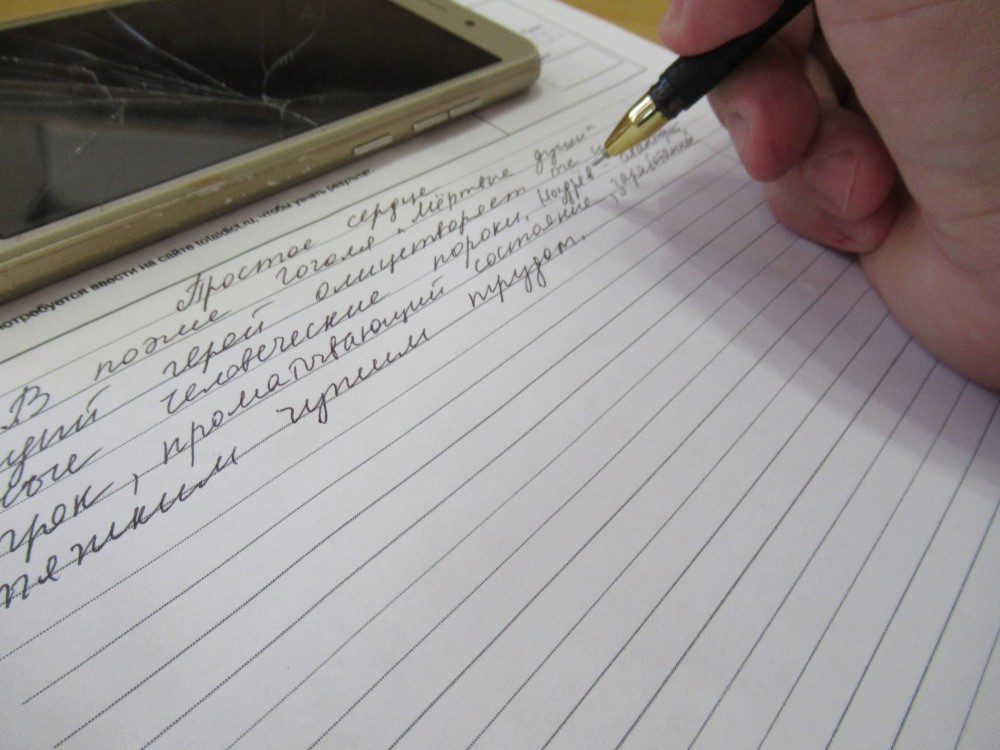 потребуется ввести на сайте totaldict.ru, чтобы узнать результат
Простое сердце
В поэме Гоголя „Мёртвые души"
герой олицетворяет те
человеческие пороки, Ноздрёв -
, проматывающий состояние, заработанное
тяжким чужим трудом.